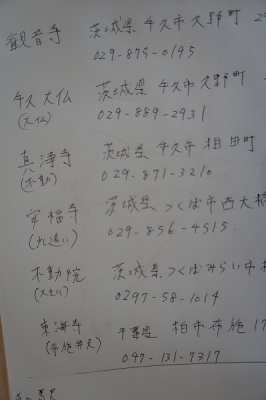 観音寺 茨城県 牛久市久野町 2
029-875-0195
牛久大仏 茨城県 牛久市 久野町
(大仏) 029-889-2931
真浄寺 茨城県 牛久市 柏田町
(不動) 029-871-3210
安福寺 茨城県 つくば市西大橋
(少し遠い) 029-856-4515
不動院 茨城県つくばみらい市板
(大きい) 0297-58-1014
東海寺 千葉県 柏市布施 17
(布施弁天) 047-131-7317